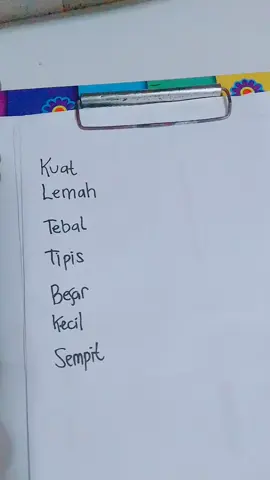 Kuat
Lemah
Tebal
Tipis
Besar
Kecil
Sempit